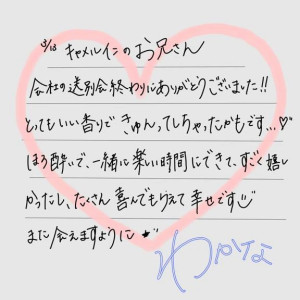 3/13 キャメルインのお兄さん
会社の送別会終わりにありがとうございました!!
とってもいい香りできゅんってしちゃったかもです...♡
ほろ酔いで、一緒に楽しい時間にできて、すごく嬉し
かったし、たくさん喜んでもらえて幸せです
また会えますように★
わかな